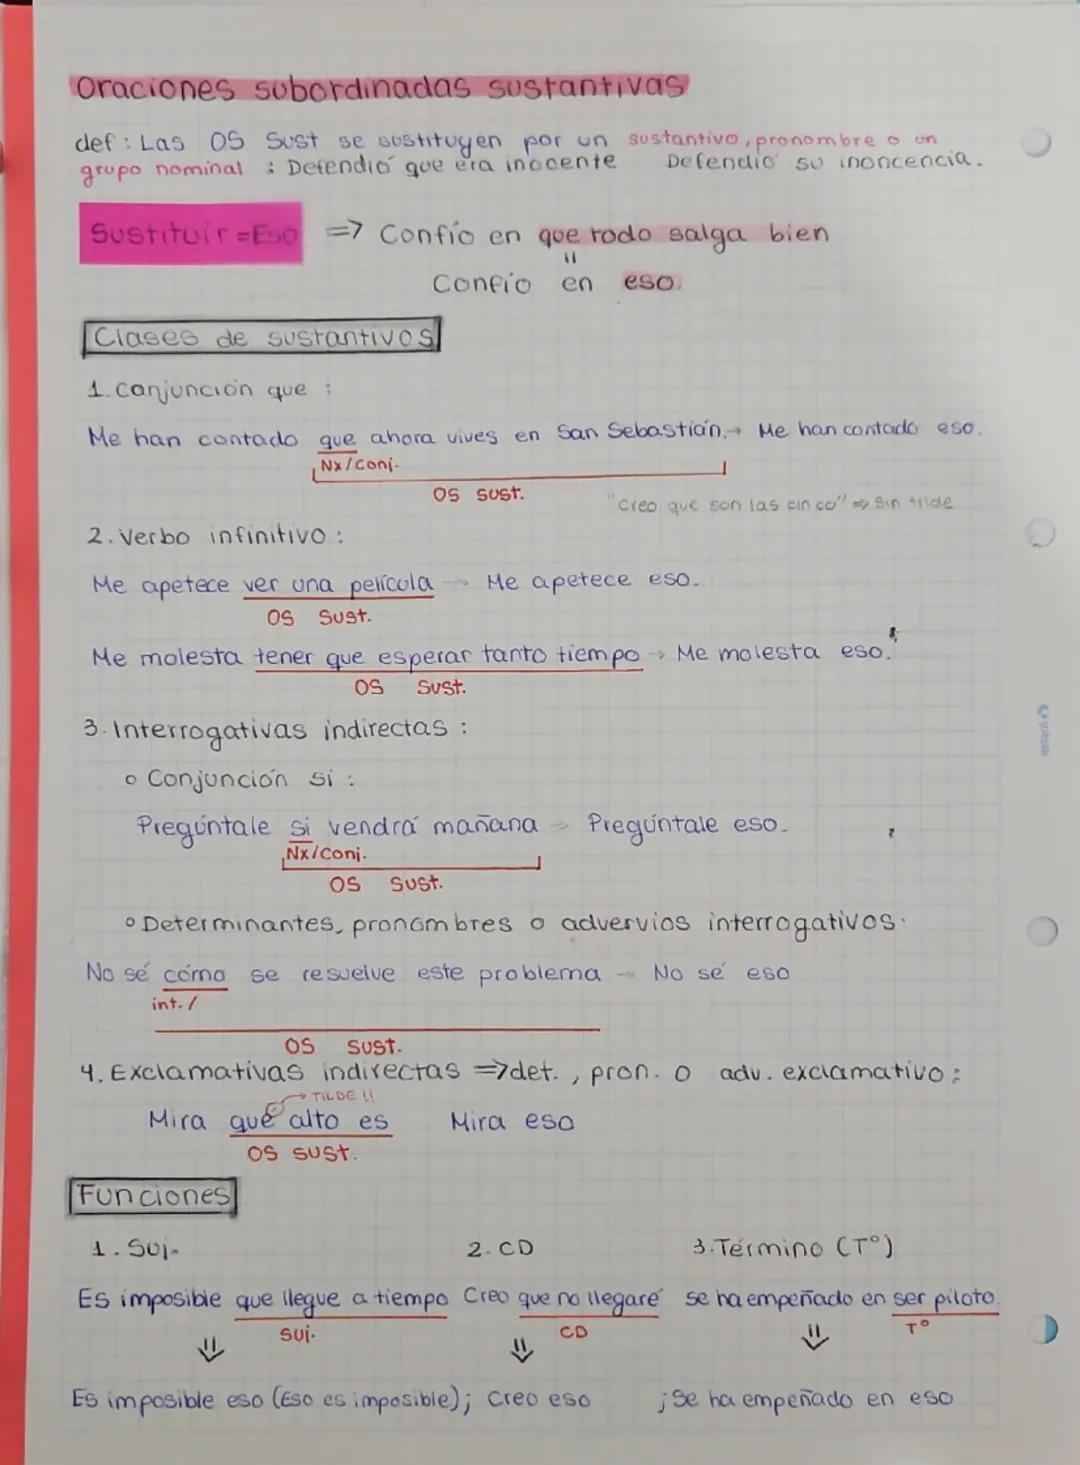 Oraciones subordinadas sustantivas
def: Las OS Sust se sustituyen por un sustantivo, pronombre o un
grupo nominal : Defendió que era inocente Defendió su inoncencia.
Sustituir = Eso => Confío en que todo salga bien
"
Confío en eso.
Clases de sustantivos
1. Conjunción que :
Me han contado que ahora vives en San Sebastián. → Me han contado eso.
Nx/Conj.
OS sust.
"Creo que son las cinco" => Sin tilde
2. Verbo infinitivo :
Me apetece ver una película → Me apetece eso.
OS Sust.
Me molesta tener que esperar tanto tiempo → Me molesta eso.
OS Sust.
3. Interrogativas indirectas :
o Conjunción si :
Pregúntale si vendrá mañana → Pregúntale eso.
Nx/Conj.
OS Sust.
o Determinantes, pronombres o advervios interrogativos.
No sé cómo se resuelve este problema – No sé eso
int. /
OS Sust.
4. Exclamativas indirectas => det., pron. o adv. exclamativo :
→ TILDE !!
Mira qué alto es Mira eso
OS sust.
Funciones
1. Suj. 2. CD 3. Término (Tº)
Es imposible que llegue a tiempo Creo que no llegaré se ha empeñado en ser piloto.
Suj. CD Tº
⇓ ⇓ ⇓
Es imposible eso (Eso es imposible); Creo eso ; Se ha empeñado en eso